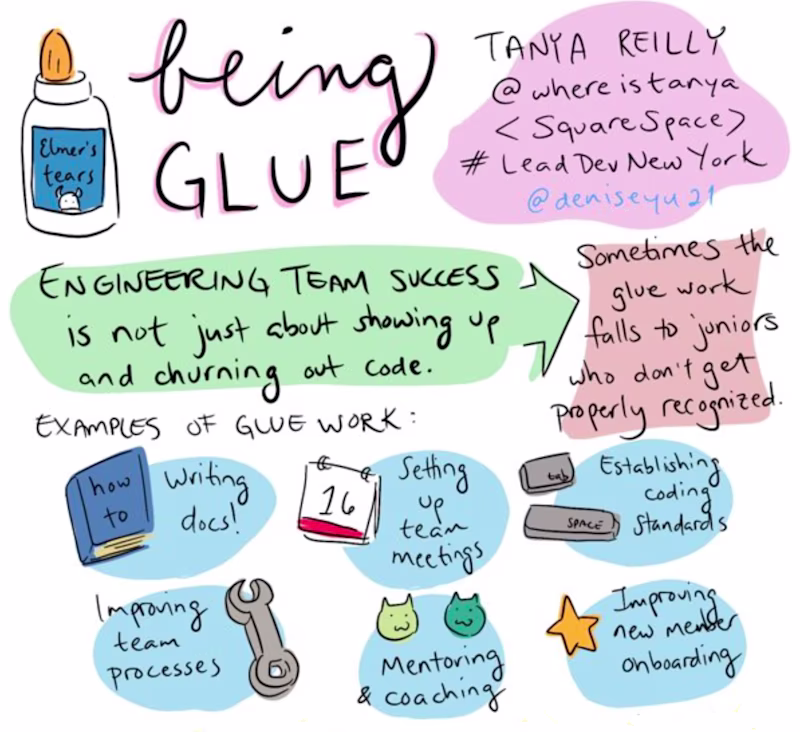 being
GLUE
Elmer's
tears
TANYA REILLY
@whereistanya
<SquareSpace>
# LeadDevNewYork
@deniseyu21
ENGINEERING TEAM SUCCESS
is not just about showing up
and churning out code.
Sometimes the
glue work
falls to juniors
who don't get
properly recognized.
EXAMPLES OF GLUE WORK:
how
to
Writing
docs!
16
Setting
up
team
meetings
tab
SPACE
Establishing
coding
standards
Improving
team
processes
Mentoring
& coaching
Improving
new member
onboarding